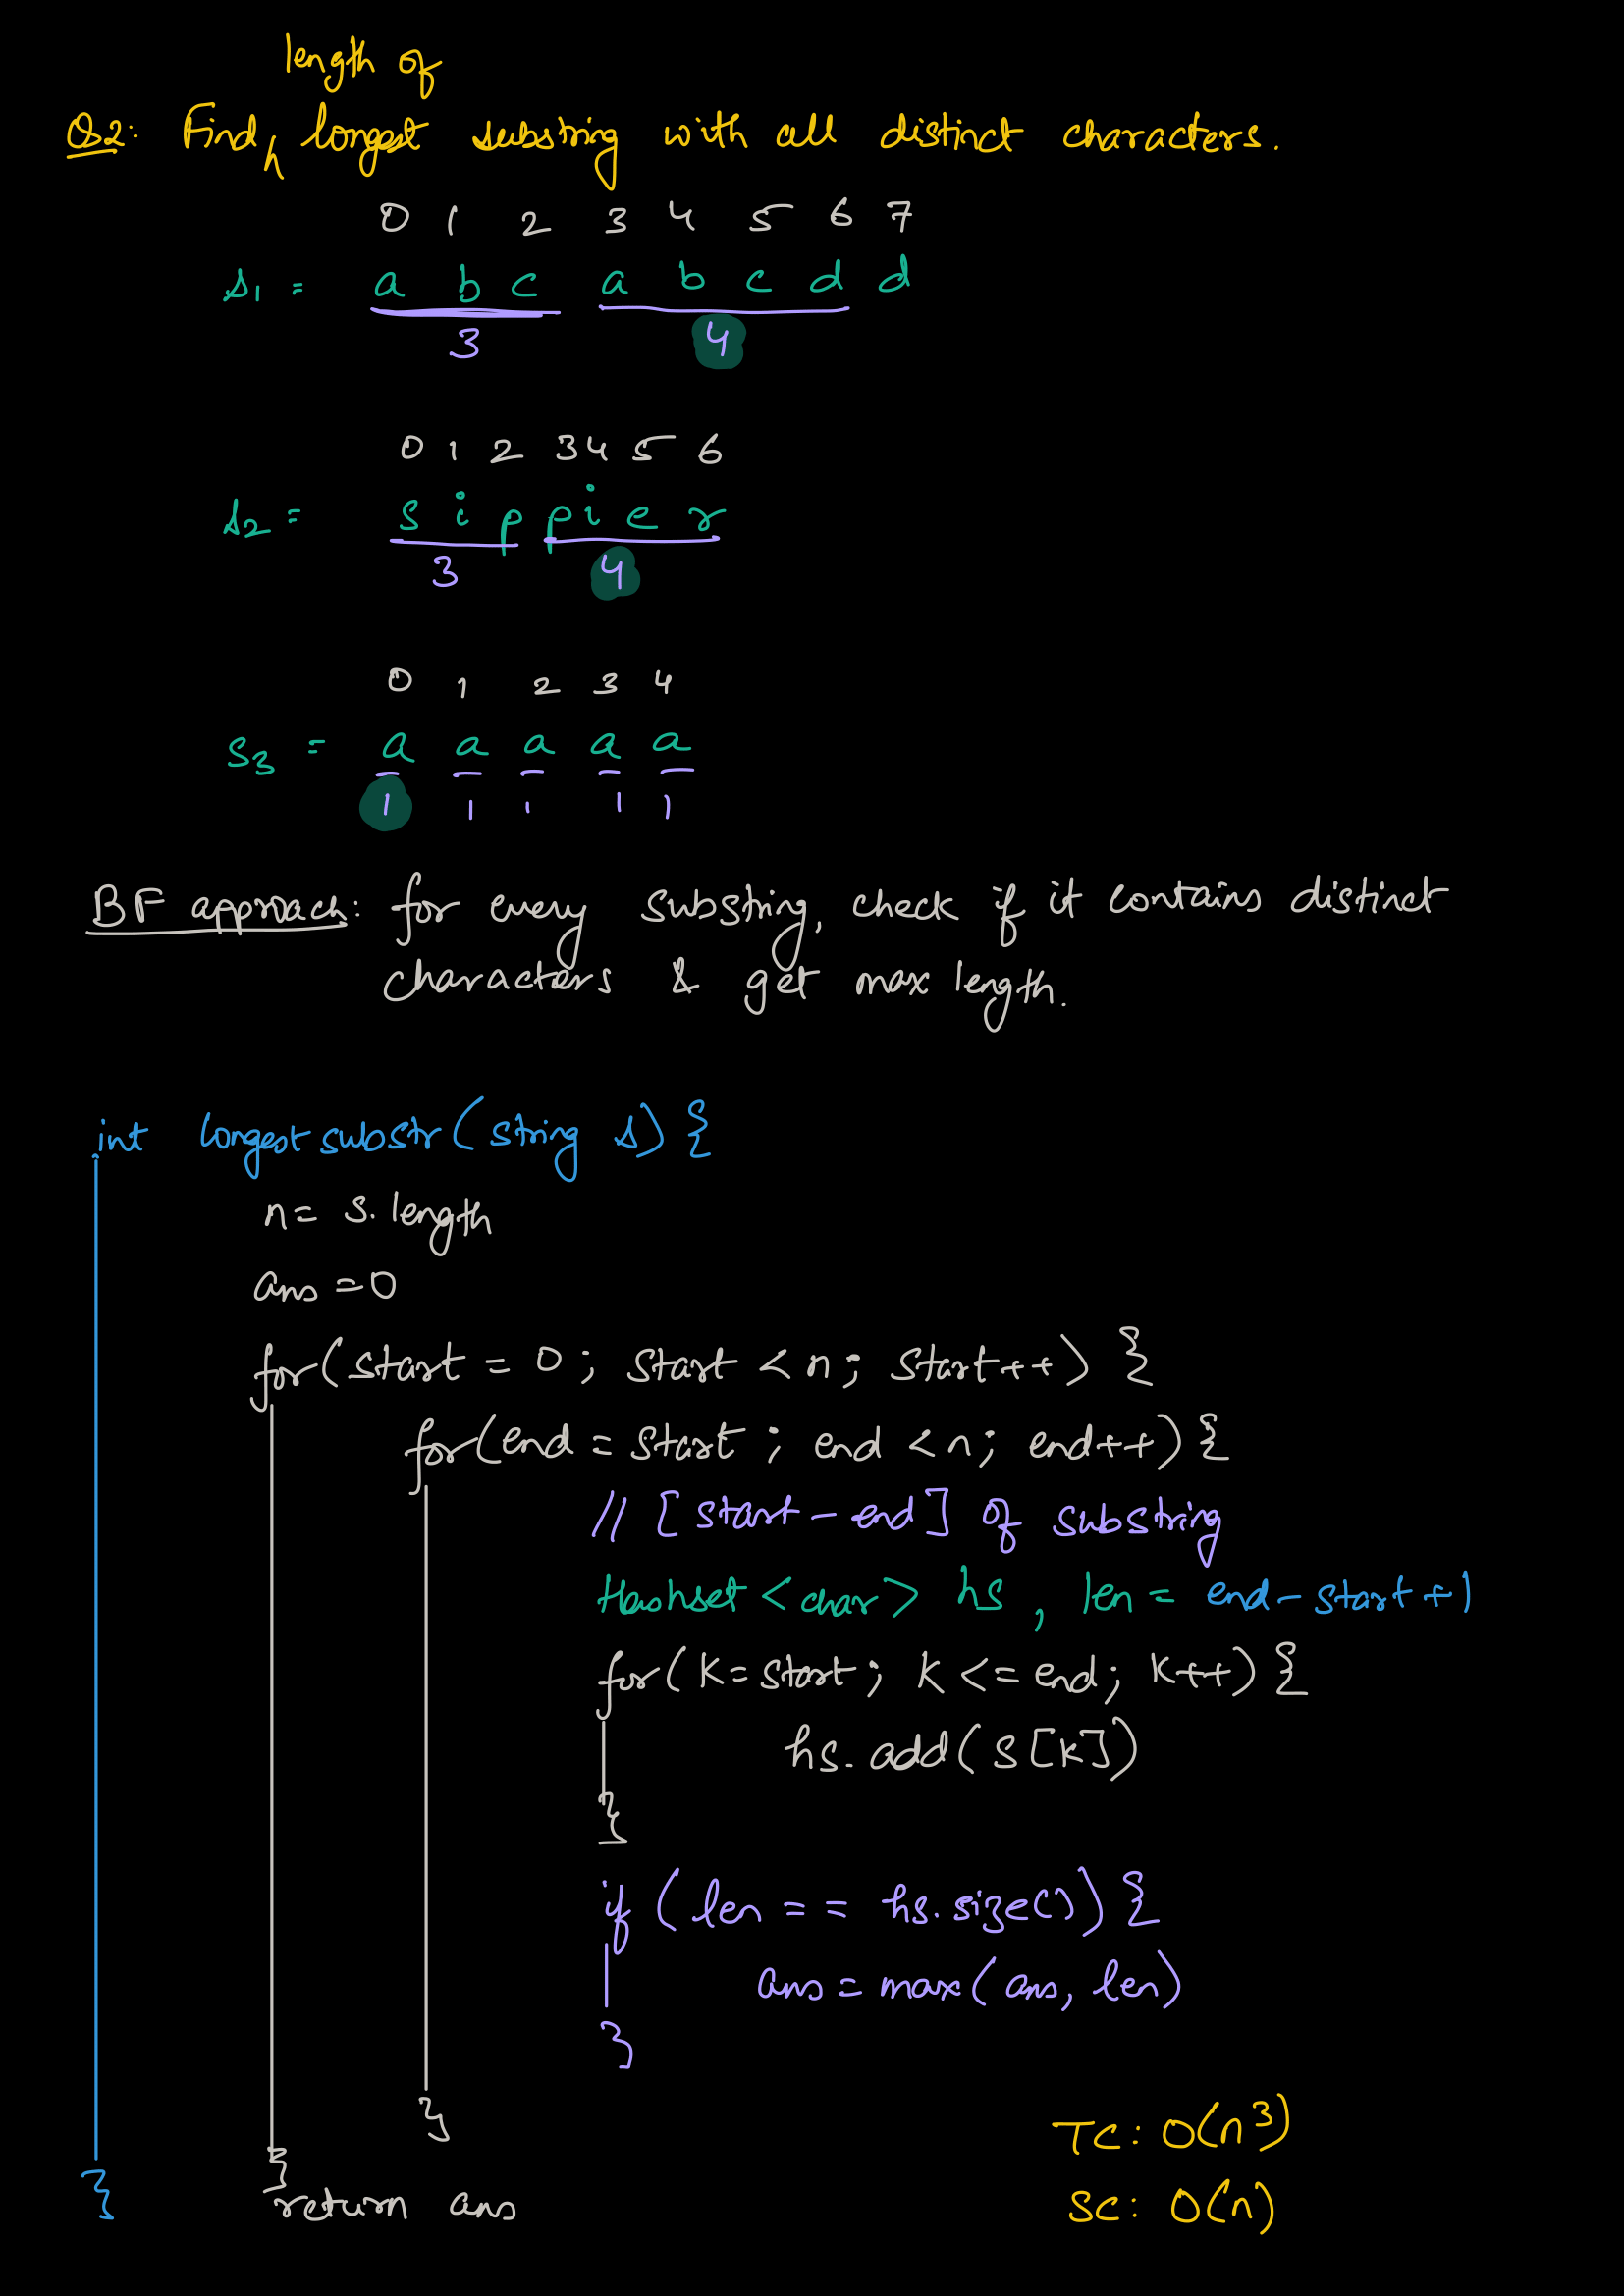 length of
Q2: Find longest substring with all distinct characters.
0 1 2 3 4 5 6 7
s1 = a b c a b c d d
3 4
0 1 2 3 4 5 6
s2 = s i p p i e r
3 4
0 1 2 3 4
s3 = a a a a a
1 1 1 1 1
BF approach: for every substring, check if it contains distinct
characters & get max length.
int longestsubstr(string s) {
n = s.length
ans = 0
for(start = 0; start < n; start++) {
for(end = start; end < n; end++) {
// [start - end] of substring
Hashset<char> hs, len = end - start + 1
for(k = start; k <= end; k++) {
hs.add(s[k])
}
if (len == hs.size()) {
ans = max(ans, len)
}
}
TC: O(n^3)
}
} return ans
SC: O(n)